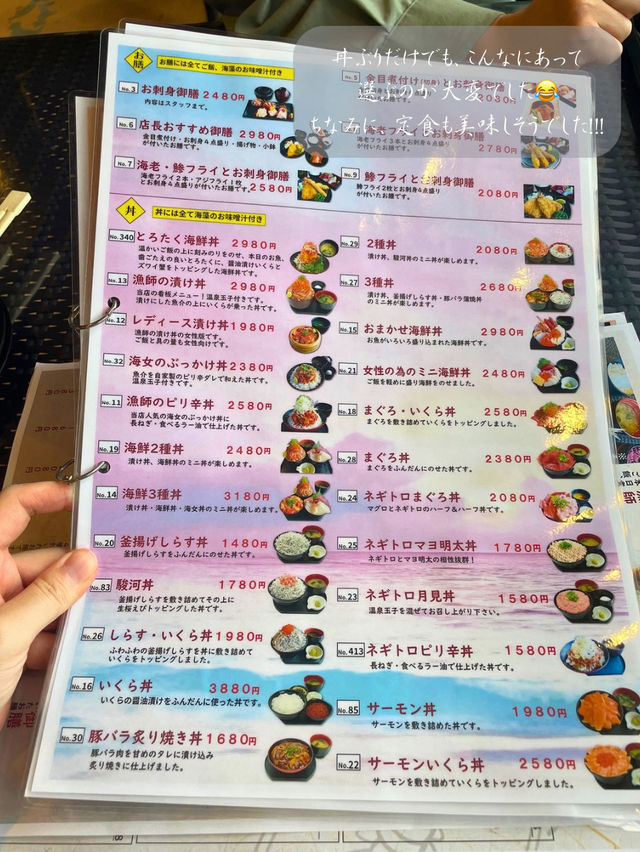 丼ぶりだけでも、こんなにあって
選ぶのが大変でした😂
ちなみに、定食も美味しそうでした!!!
お膳
お膳には全てご飯、海藻のお味噌汁付き
No.3 お刺身御膳 2480円
内容はスタッフまで。
No.6 店長おすすめ御膳 2980円
金目煮付け・お刺身4点盛り・揚げ物・小鉢
が付いたお膳です。
No.7 海老・鯵フライとお刺身御膳
海老フライ2本・アジフライ1枚
とお刺身4点盛りが付いたお膳です。2580円
No.5 金目煮付け(切身)とお刺身御膳
海老フライ3本とお刺身4点盛り
が付いたお膳です。 2780円
No.9 鯵フライとお刺身御膳
鯵フライ2枚とお刺身4点盛り
が付いたお膳です。 2080円
丼
丼には全て海藻のお味噌汁付き
No.340 とろたく海鮮丼 2980円
温かいご飯の上に刻みのりをのせ、本日のお魚、
歯ごたえの良いとろたくに、醤油漬けいくらと
ズワイ蟹をトッピングした海鮮丼です。
No.13 漁師の漬け丼 2980円
当店の看板メニュー！温泉玉子付きです。
漬けにした魚介の上にいくらが乗った丼です。
No.12 レディース漬け丼 1980円
漁師の漬け丼の女性版です。
ご飯と具の量も女性向けです。
No.32 海女のぶっかけ丼 2380円
魚介を自家製のピリ辛ダレで和えた丼です。
温泉玉子付きです。
No.11 漁師のピリ辛丼 2580円
当店人気の海女のぶっかけ丼に
長ねぎ・食べるラー油で仕上げた丼です。
No.19 海鮮2種丼 2480円
漬け丼、海鮮丼のミニ丼が楽しめます。
No.14 海鮮3種丼 3180円
漬け丼・海鮮丼・海女丼のミニ丼が楽しめます。
No.20 釜揚げしらす丼 1480円
釜揚げしらすをふんだんにのせた丼です。
No.83 駿河丼 1780円
釜揚げしらすを敷き詰めてその上に
生桜えびトッピングした丼です。
No.26 しらす・いくら丼 1980円
ふわふわの釜揚げしらすを丼に敷き詰めて
いくらをトッピングしました。
No.16 いくら丼 3880円
いくらの醤油漬けをふんだんに使った丼です。
No.30 豚バラ炙り焼き丼 1680円
豚バラ肉を甘めのタレに漬け込み
炙り焼きに仕上げました。
No.29 2種丼 2080円
漬け丼、駿河丼のミニ丼が楽しめます。
No.27 3種丼 2680円
漬け丼、釜揚げしらす丼・豚バラ蒲焼丼
のミニ丼が楽しめます。
No.15 おまかせ海鮮丼 2980円
お魚がいろいろ盛り込まれた海鮮丼です。
No.21 女性の為のミニ海鮮丼 2480円
ご飯を軽めに盛り海鮮をのせました。
No.18 まぐろ・いくら丼 2580円
まぐろを敷き詰めていくらをトッピングしました。
No.28 まぐろ丼 2380円
まぐろをふんだんにのせた丼です。
No.24 ネギトロまぐろ丼 2080円
マグロとネギトロのハーフ&ハーフ丼です。
No.25 ネギトロマヨ明太丼 1780円
ネギトロとマヨ明太の相性抜群！
No.23 ネギトロ月見丼 1580円
温泉玉子を混ぜてお召し上がり下さい。
No.413 ネギトロピリ辛丼 1580円
長ねぎ・食べるラー油で仕上げた丼です。
No.85 サーモン丼 1980円
サーモンを敷き詰めた丼です。
No.22 サーモンいくら丼 2580円
サーモンを敷き詰めていくらをトッピングしました。